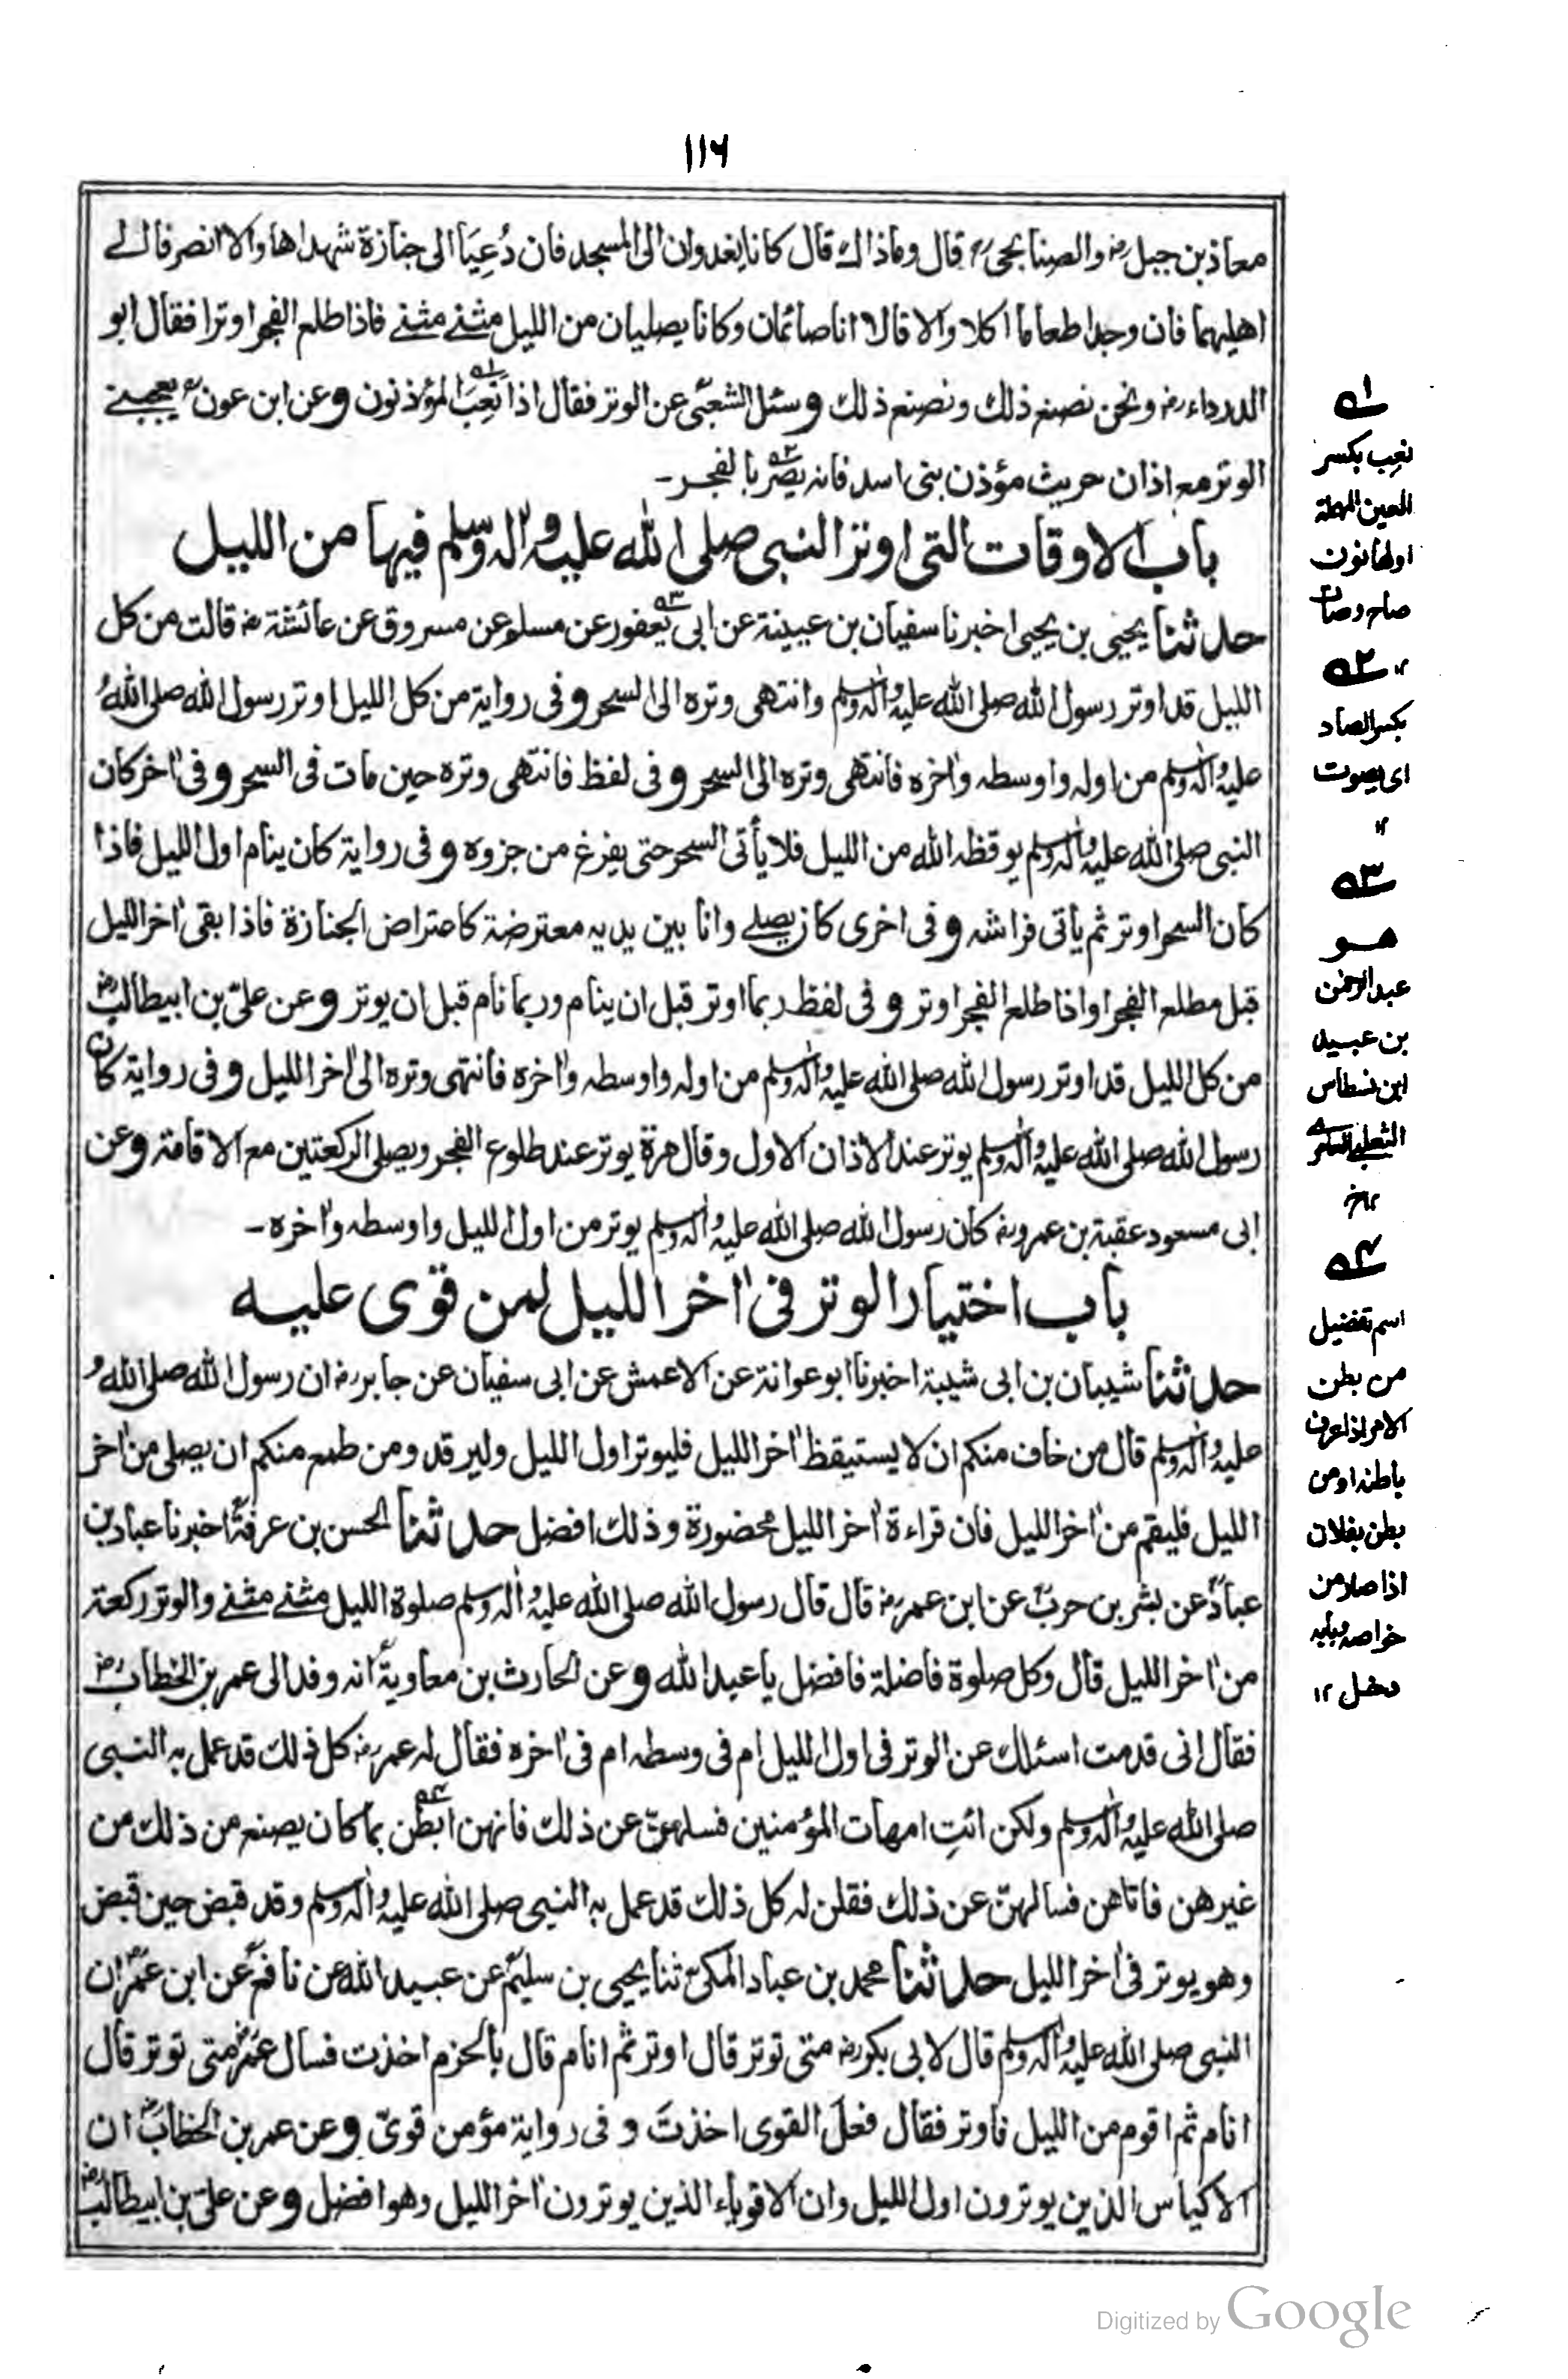 ١١٦
معاذ بن جبل رض والصنابحی رح قال وماذاك قال كانا يغدوان الى المسجد فان دُعِيَا الى جنازة شهداها والا انصرفا الے
اهليهما فان وجدا طعاما اكلا والا قالا انا صائمان وكانا يصليان من الليل مثنے مثنے فاذا طلع الفجر اوترا فقال ابو
الدرداء رض ونحن نصنع ذلك ونصنع ذلك وسئل الشعبیؒ عن الوتر فقال اذا نَعِبَ المؤذنون وعن ابن عون رح يعجبنے
الوتر مع اذان حريث مؤذن بنی اسد فانه يصرّ بالفجر۔
باب الاوقات التی اوتر النبی صلی الله عليه واٰله وسلم فيها من الليل
حدثنا يحيی بن يحيی اخبرنا سفيان بن عيينة عن ابی يعفور عن مسلم عن مسروق عن عائشة رض قالت من كل
الليل قد اوتر رسول الله صلی الله عليه واٰله وسلم وانتهی وتره الی السحر وفی رواية من كل الليل اوتر رسول الله صلی الله
عليه واٰله وسلم من اوله واوسطه واٰخره فانتهی وتره الی السحر وفی لفظ فانتهی وتره حين مات فی السحر وفی اٰخر كان
النبی صلی الله عليه واٰله وسلم يوقظه الله من الليل فلا يأتی السحر حتی يفرغ من جزوه وفی رواية كان ينام اول الليل فاذا
كان السحر اوتر ثم يأتی فراشه وفی اخری كان يصلے وانا بين يديه معترضة كاعتراض الجنازة فاذا بقی اٰخر الليل
قبل مطلع الفجر او اذا طلع الفجر اوتر وفی لفظ ربما اوتر قبل ان ينام وربما نام قبل ان يوتر وعن علیّ بن ابيطالب رض
من كل الليل قد اوتر رسول الله صلی الله عليه واٰله وسلم من اوله واوسطه واٰخره فانتهی وتره الی اٰخر الليل وفی رواية كان
رسول الله صلی الله عليه واٰله وسلم يوتر عند الاذان الاول وقال مرة يوتر عند طلوع الفجر ويصلی الركعتين مع الاقامة وعن
ابی مسعود عقبة بن عمرو رض كان رسول الله صلی الله عليه واٰله وسلم يوتر من اول الليل واوسطه واٰخره۔
باب اختيار الوتر فی اٰخر الليل لمن قوی عليه
حدثنا شيبان بن ابی شيبة اخبرنا ابو عوانة عن الاعمش عن ابی سفيان عن جابر رض ان رسول الله صلی الله
عليه واٰله وسلم قال من خاف منكم ان لا يستيقظ اٰخر الليل فليوتر اول الليل وليرقد ومن طمع منكم ان يصلی من اٰخر
الليل فليقم من اٰخر الليل فان قراءة اٰخر الليل محضورة وذلك افضل حدثنا الحسن بن عرفةؒ اخبرنا عباد بن
عبادؒ عن بشر بن حربؒ عن ابن عمر رض قال قال رسول الله صلی الله عليه واٰله وسلم صلوة الليل مثنے مثنے والوتر ركعة
من اٰخر الليل قال وكل صلوة فاضلة فافضل يا عبد الله وعن الحارث بن معاويةؒ انه وفد الی عمر بن الخطاب رض
فقال انی قدمت اسئلك عن الوتر فی اول الليل ام فی وسطه ام فی اٰخره فقال له عمر رض كل ذلك قد عمل به النبی
صلی الله عليه واٰله وسلم ولكن ائتِ امهات المؤمنين فسلهنّ عن ذلك فانهن ابطن بما كان يصنع من ذلك من
غيرهن فاتاهن فسالهنّ عن ذلك فقلن له كل ذلك قد عمل به النبی صلی الله عليه واٰله وسلم وقد قبض حين قبض
وهو يوتر فی اٰخر الليل حدثنا محمد بن عباد المكیؒ ثنا يحيی بن سليمؒ عن عبيد الله عن نافعؒ عن ابن عمرؓ ان
النبی صلی الله عليه واٰله وسلم قال لابی بكر رض متی توتر قال اوتر ثم انام قال بالحزم اخذت فسال عمر رض متی توتر قال
انام ثم اقوم من الليل فاوتر فقال فعلَ القوی اخذتَ وفی رواية مؤمن قویّ وعن عمر بن الخطابؓ ان
الاكياس الذين يوترون اول الليل وان الاقوياء الذين يوترون اٰخر الليل وهو افضل وعن علیّ بن ابيطالب رض
١ه
نعِب بكسر
العين المهملة
اولها نون
صاح وصات
١٢
٢ه
بكسر الصاد
ای يصوت
١٢
٣ه
هو
عبد الرحمٰن
بن عبيد
ابن نسطاس
١٢
٤ه
اسم تفضيل
من بطن
الامر اذا عرف
باطنه او من
بطن بفلان
اذا صار من
خواصه
دخل ١٢
Digitized by Google